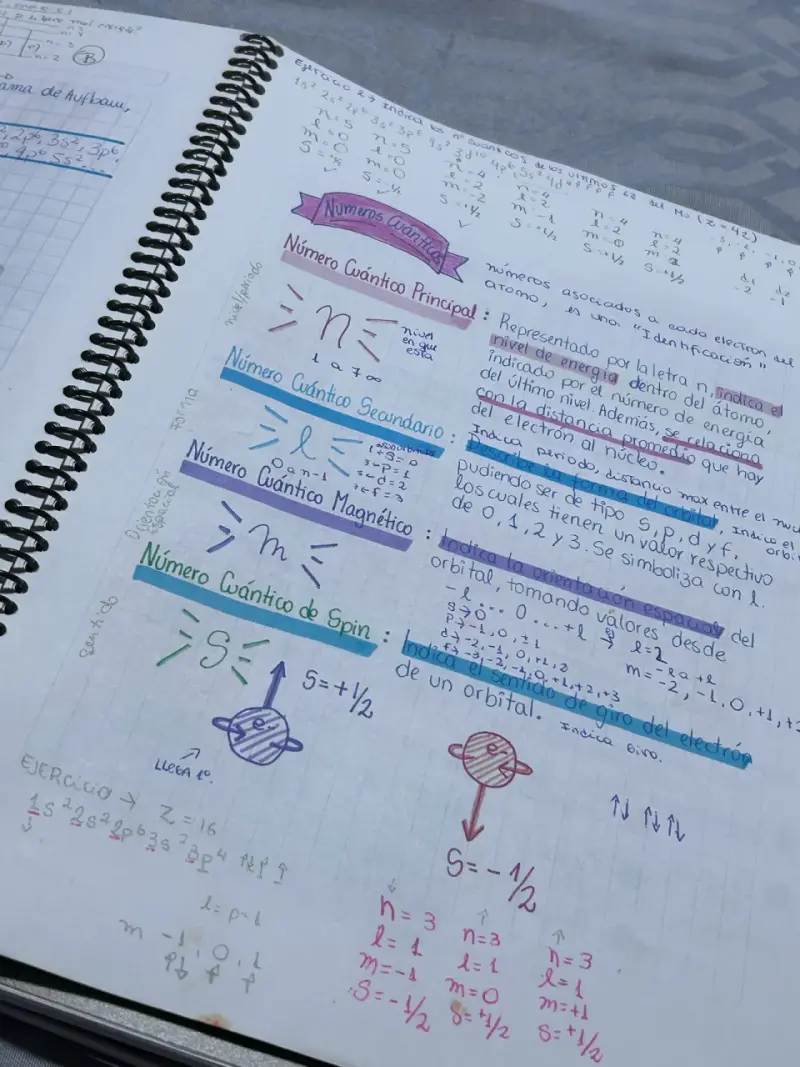 ama de Aufbau,
2p⁶, 3s², 3p⁶,
4p⁶ 5s²
Ejercicio 2 → Indica los nº cuánticos de los últimos e⁻ del Mo (Z=42)
1s² 2s² 2p⁶ 3s² 3p⁶ 4s² 3d¹⁰ 4p⁶ 5s² 4d⁴
n=5 n=5 n=4 n=4 n=4 n=4
l=0 l=0 l=2 l=2 l=2 l=2
m=0 m=0 m=-2 m=-1 m=0
S=+1/2 S=+1/2 S=+1/2 S=+1/2
Números Cuánticos
números asociados a cada electron del
atomo, es una "Identificación"
nivel/periodo
Número Cuántico Principal:
n
nivel
en que
esta
1 a 7 ∞
Representado por la letra n, indica el
nivel de energía dentro del átomo,
indicado por el número de energía
del último nivel. Además, se relaciona
con la distancia promedio que hay
del electrón al núcleo.
Indica periodo, distancia max entre el
Forma
Número Cuántico Secundario:
l
0 a n-1
s=0
p=1
d=2
f=3
Describe la forma del orbital, Indica el
pudiendo ser de tipo s, p, d y f,
los cuales tienen un valor respectivo
de 0, 1, 2 y 3. Se simboliza con l.
Orientación
espacial
Número Cuántico Magnético:
m
Indica la orientación espacial del
orbital, tomando valores desde
-l ... 0 ... +l
s→0
p→-1, 0, +1
d→-2, -1, 0, +1, 2
f→-3, -2, -1, 0, +1, +2, +3
l=2
m=-l a +l
m=-2, -1, 0, +1,
Sentido
Número Cuántico de Spin:
S
Indica el sentido de giro del electrón
de un orbital. Indica giro.
S=+1/2
e⁻
LLEGA 1º.
e⁻
S=-1/2
↑↓ ↑↓ ↑↓
EJERCICIO → Z=16
1s² 2s² 2p⁶ 3s² 3p⁴ ↑↓ ↑ ↑
l=p=1
m -1, 0, 1
↑↓ ↑ ↑
n=3 n=3 n=3
l=1 l=1 l=1
m=-1 m=0 m=+1
S=-1/2 S=+1/2 S=+1/2